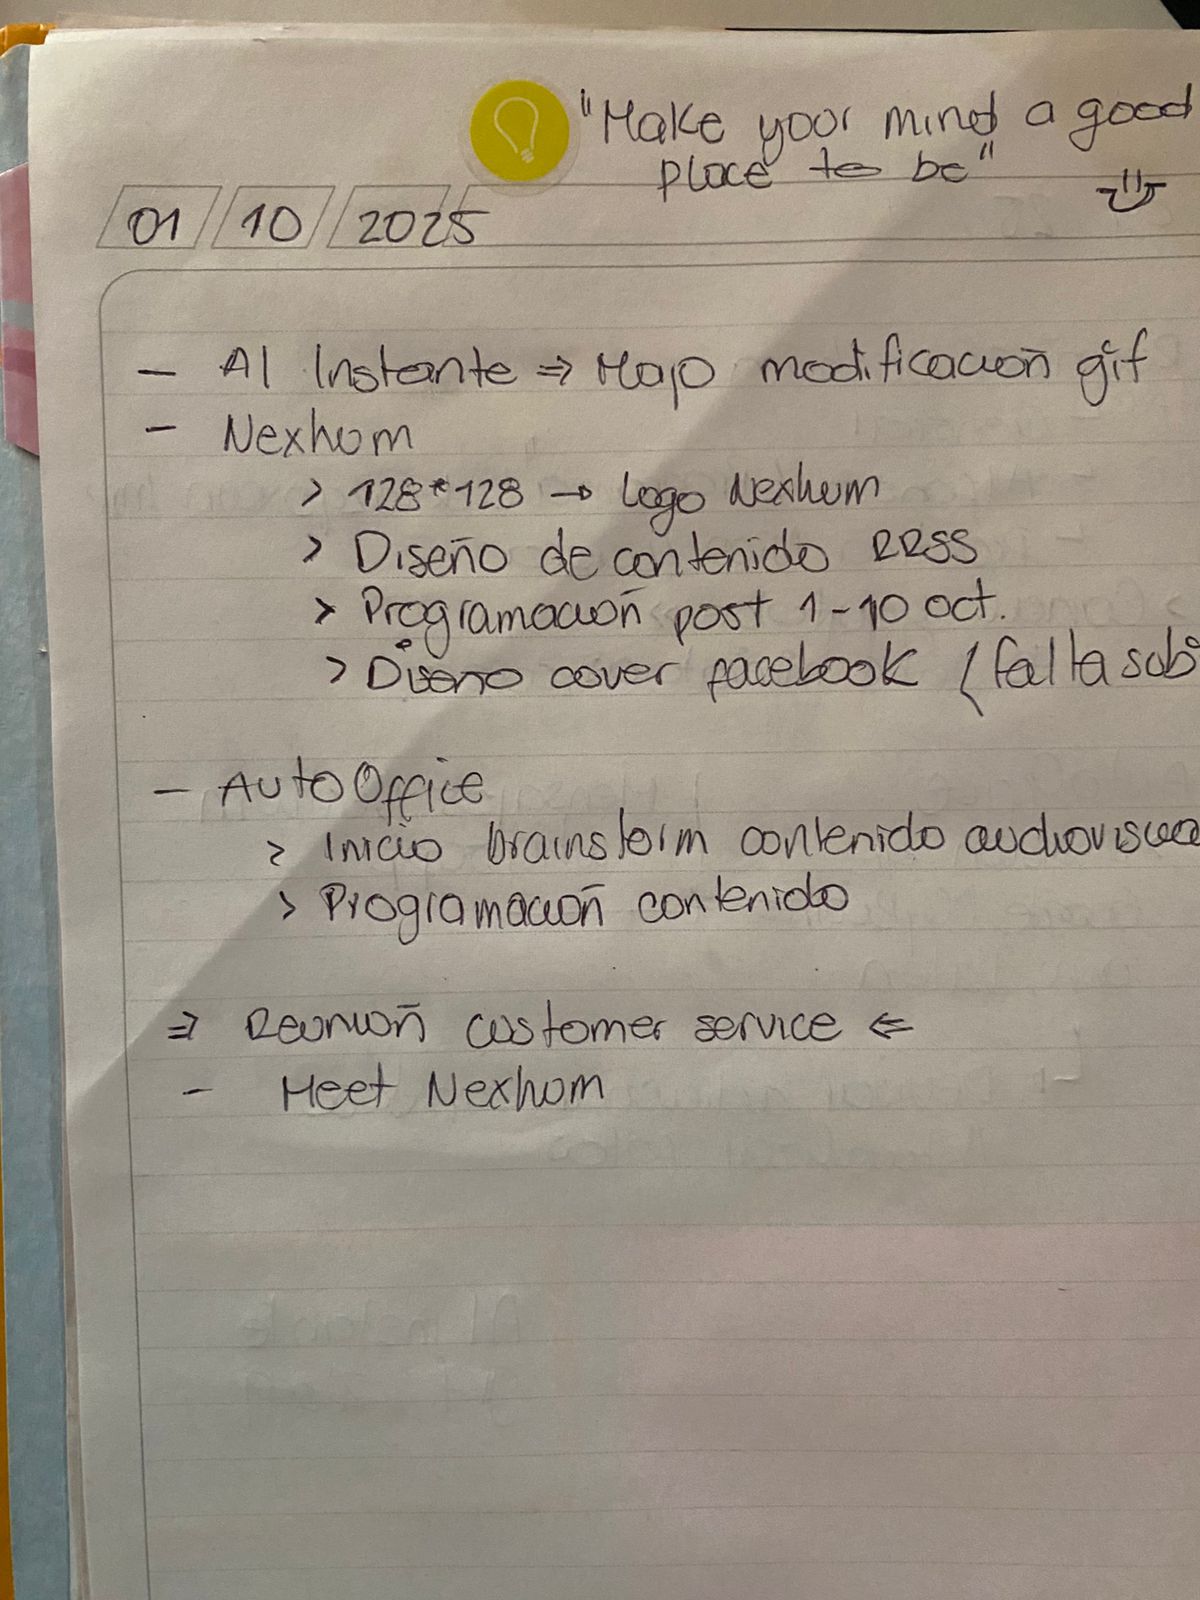 "Make your mind a good
place to be"
01 10 2025
- Al Instante ⇒ Majo modificación gif
- Nexhum
> 128*128 → Logo Nexhum
> Diseño de contenido RRSS
> Programación post 1-10 oct.
> Diseño cover facebook (falta sub
- AutoOffice
> Inicio brainstorm contenido audiovisua
> Programación contenido
⇒ Reunión customer service ⇐
- Meet Nexhum